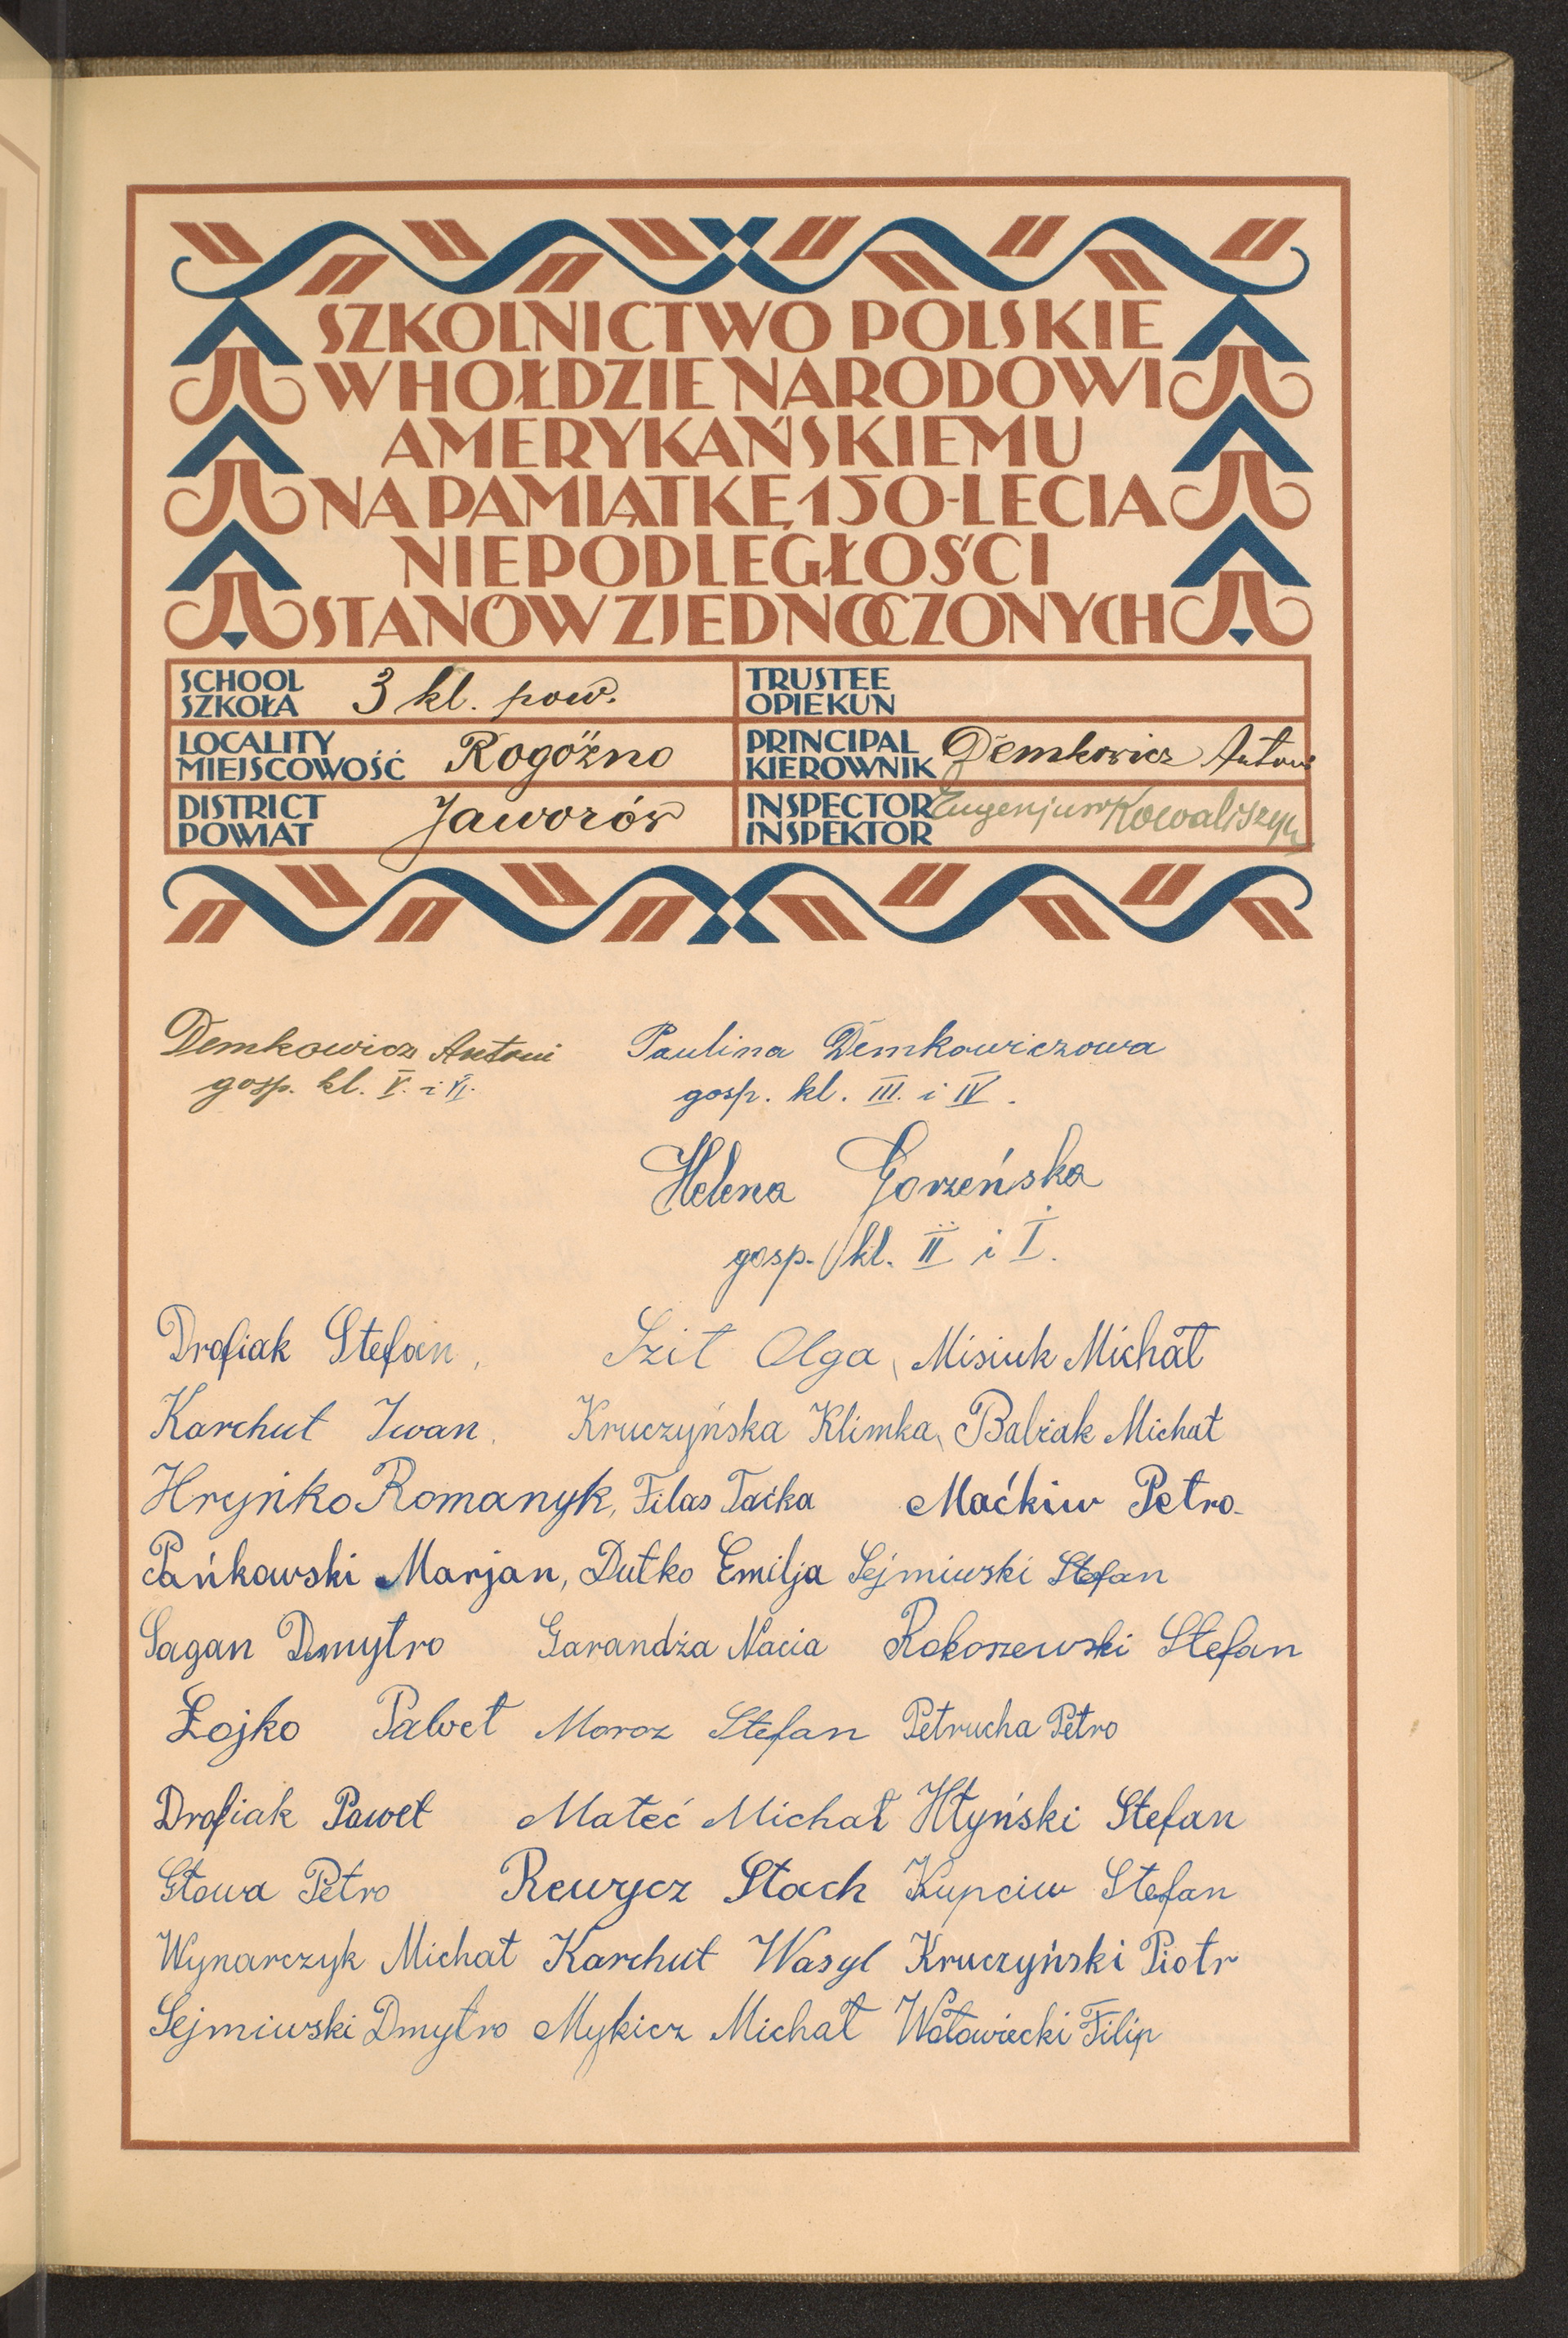 SZKOLNICTWO POLSKIE
W HOŁDZIE NARODOWI
AMERYKAŃSKIEMU
NA PAMIĄTKĘ 150-LECIA
NIEPODLEGŁOŚCI
STANÓW ZJEDNOCZONYCH
SCHOOL
SZKOŁA
3 kl. pow.
TRUSTEE
OPIEKUN
LOCALITY
MIEJSCOWOŚĆ
Rogóźno
PRINCIPAL
KIEROWNIK
Demkowicz Antoni
DISTRICT
POWIAT
Jaworów
INSPECTOR
INSPEKTOR
Eugenjusz Kowaliszyn
Demkowicz Antoni Paulina Demkowiczowa
gosp. kl. V. i VI. gosp. kl. III. i IV.
Helena Gorzeńska
gosp. kl. II i I.
Drofiak Stefan, Szit Olga, Misiuk Michał
Karchut Iwan, Kruczyńska Klimka, Balżak Michał
Hryńko Romanyk, Filas Taćka Maćkiw Petro
Pańkowski Marjan, Dutko Emilja Sejmiwski Stefan
Sagan Dmytro Garandża Nacia Rokoszewski Stefan
Łojko Paweł Moroz Stefan Petrucha Petro
Drofiak Paweł Mateć Michał Hłyński Stefan
Głowa Petro Rewycz Stach Kupciw Stefan
Wynarczyk Michał Karchut Wasyl Kruczyński Piotr
Sejmiwski Dmytro Mykicz Michał Wołowiecki Filip